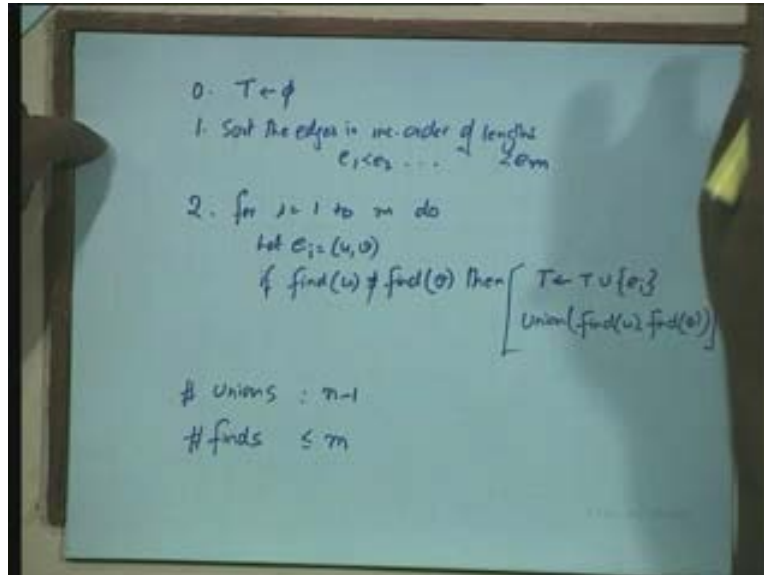 0. T ← ϕ
1. Sort the edges in inc. order of lengths
e₁<e₂ ... <em
2. for i= 1 to m do
Let eᵢ = (u,v)
if find(u) ≠ find(v) then [ T ← T ∪ {eᵢ}
Union(find(u), find(v)) ]
# Unions : n-1
# finds ≤ m